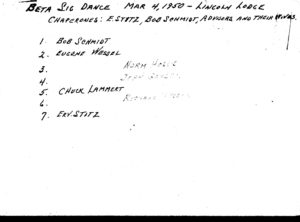 BETA SIG DANCE MAR 4, 1950 - LINCOLN LODGE
CHAPERONES: E. STOTZ, BOB SCHMIDT, ADVISERS AND THEIR WIVES.
1. BOB SCHMIDT
2. EUGENE WESSEL
3. NORM
4.
5. CHUCK LAMMERT
6.
7. ERV. STOTZ